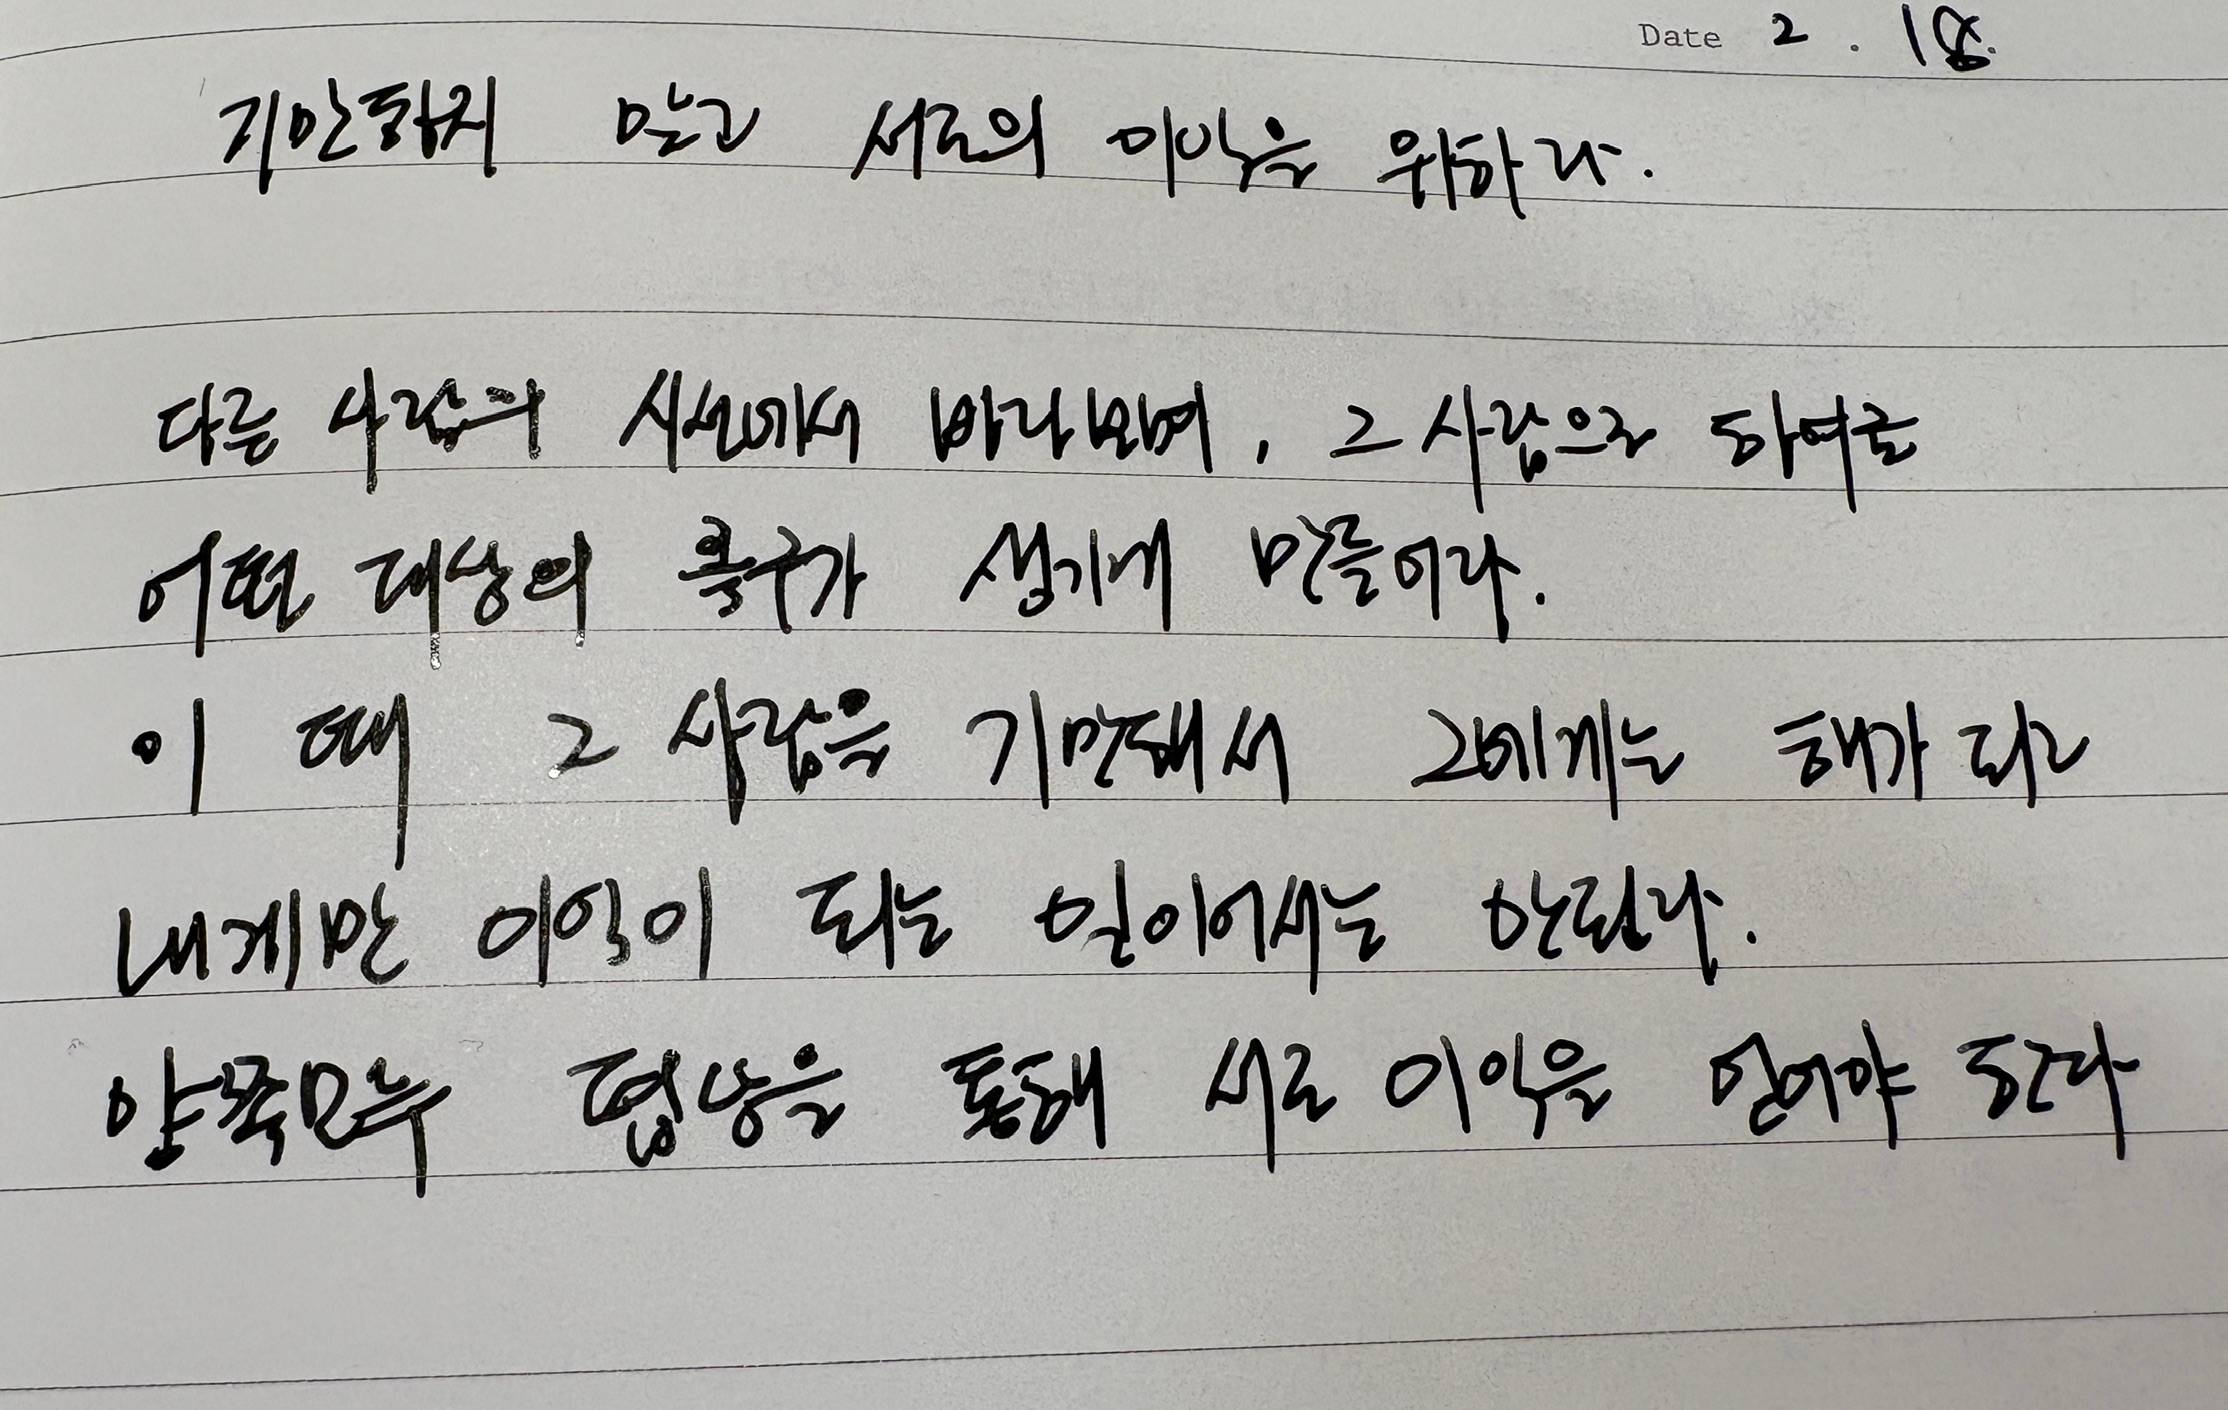 Date 2 . 18.
기만하지 말고 서로의 이익을 위하라.
다른 사람의 시선에서 바라보며, 그 사람으로 하여금
어떤 대상의 욕구가 생기게 만들어라.
이 때 그 사람을 기만해서 그에게는 해가 되고
내게만 이익이 되는 일이어서는 안된다.
양쪽모두 협상을 통해 서로 이익을 얻어야 한다